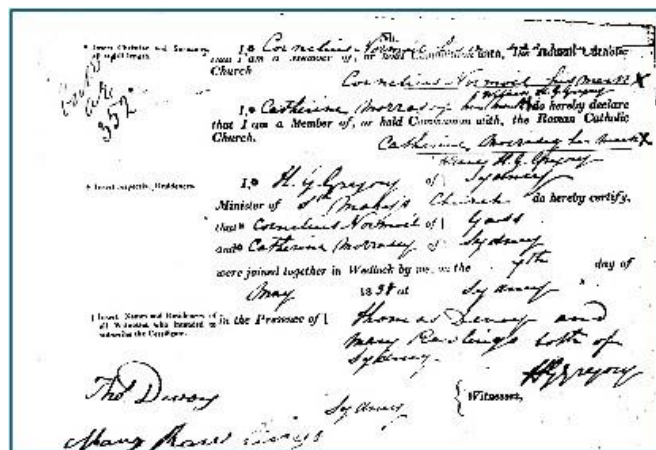 No.
* Insert Christian and Surname at full length.
I,* Cornelius Normoil do hereby declare
that I am a Member of, or hold Communion with, the Roman Catholic
Church
Cornelius Normoil his mark X
Witness H. G. Gregory
I,* Catherine Morrasey her mark do hereby declare
that I am a Member of, or hold Communion with, the Roman Catholic
Church.
Catherine Morrasey her mark X
Witness H. G. Gregory
352
† Insert respective Residences.
I,* H. G. Gregory of Sydney
Minister of St Mary's Church do hereby certify,
that* Cornelius Normoil of† Yass
and* Catherine Morrasey of Sydney
were joined together in Wedlock by me, on the 7th day of
May 1838 at Sydney
‡ Insert Names and Residences of all Witnesses who intended to subscribe the Certificate.
in the Presence of‡ Thomas and
Mary Rawlings both of
Sydney.
H G Gregory
Thos
Sydney
Witnesses,
Mary